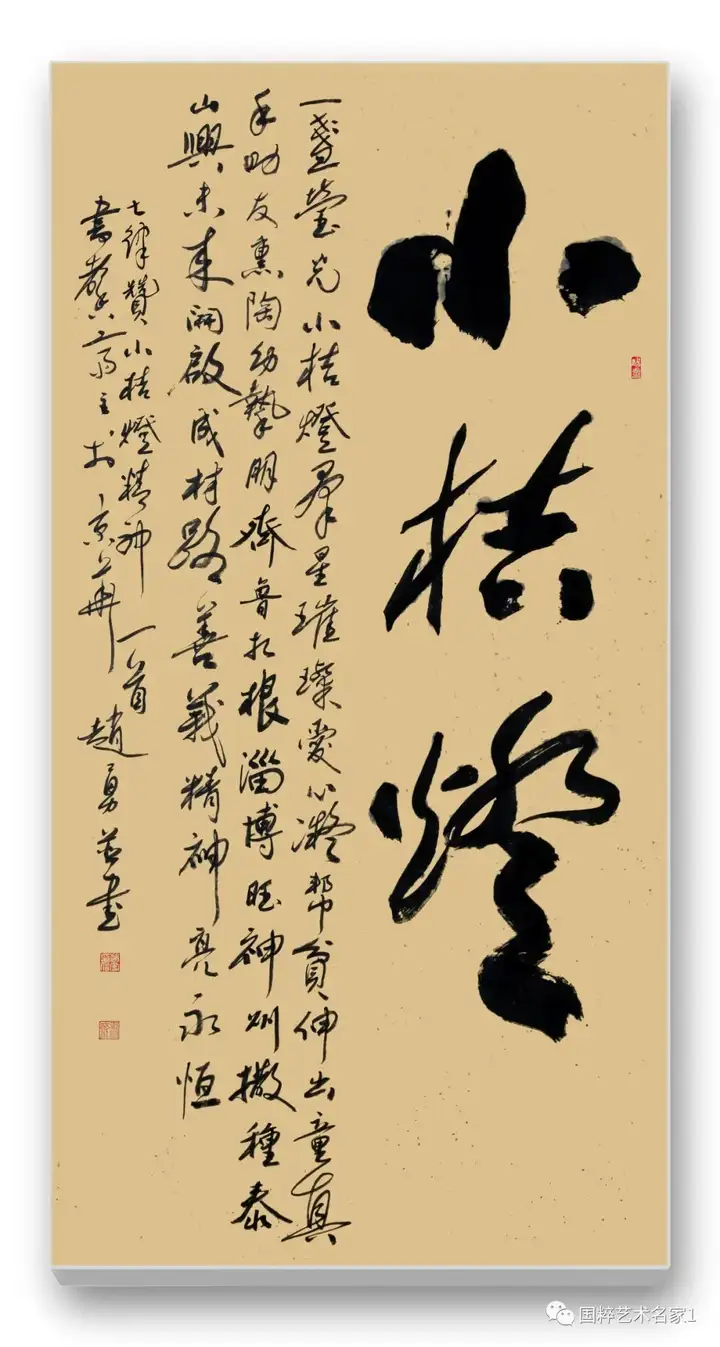 小桔燈
一盞瑩光小桔燈羣星璀璨愛心凝幫貧伸出童真
手助友熏陶幼摯朋齊魯扎根淄博旺神州撒種泰
山興未来開啟成材路善義精神亮永恒
七律贊小桔燈精神一首
書馨齋主於京華趙勇并書
国粹艺术名家1